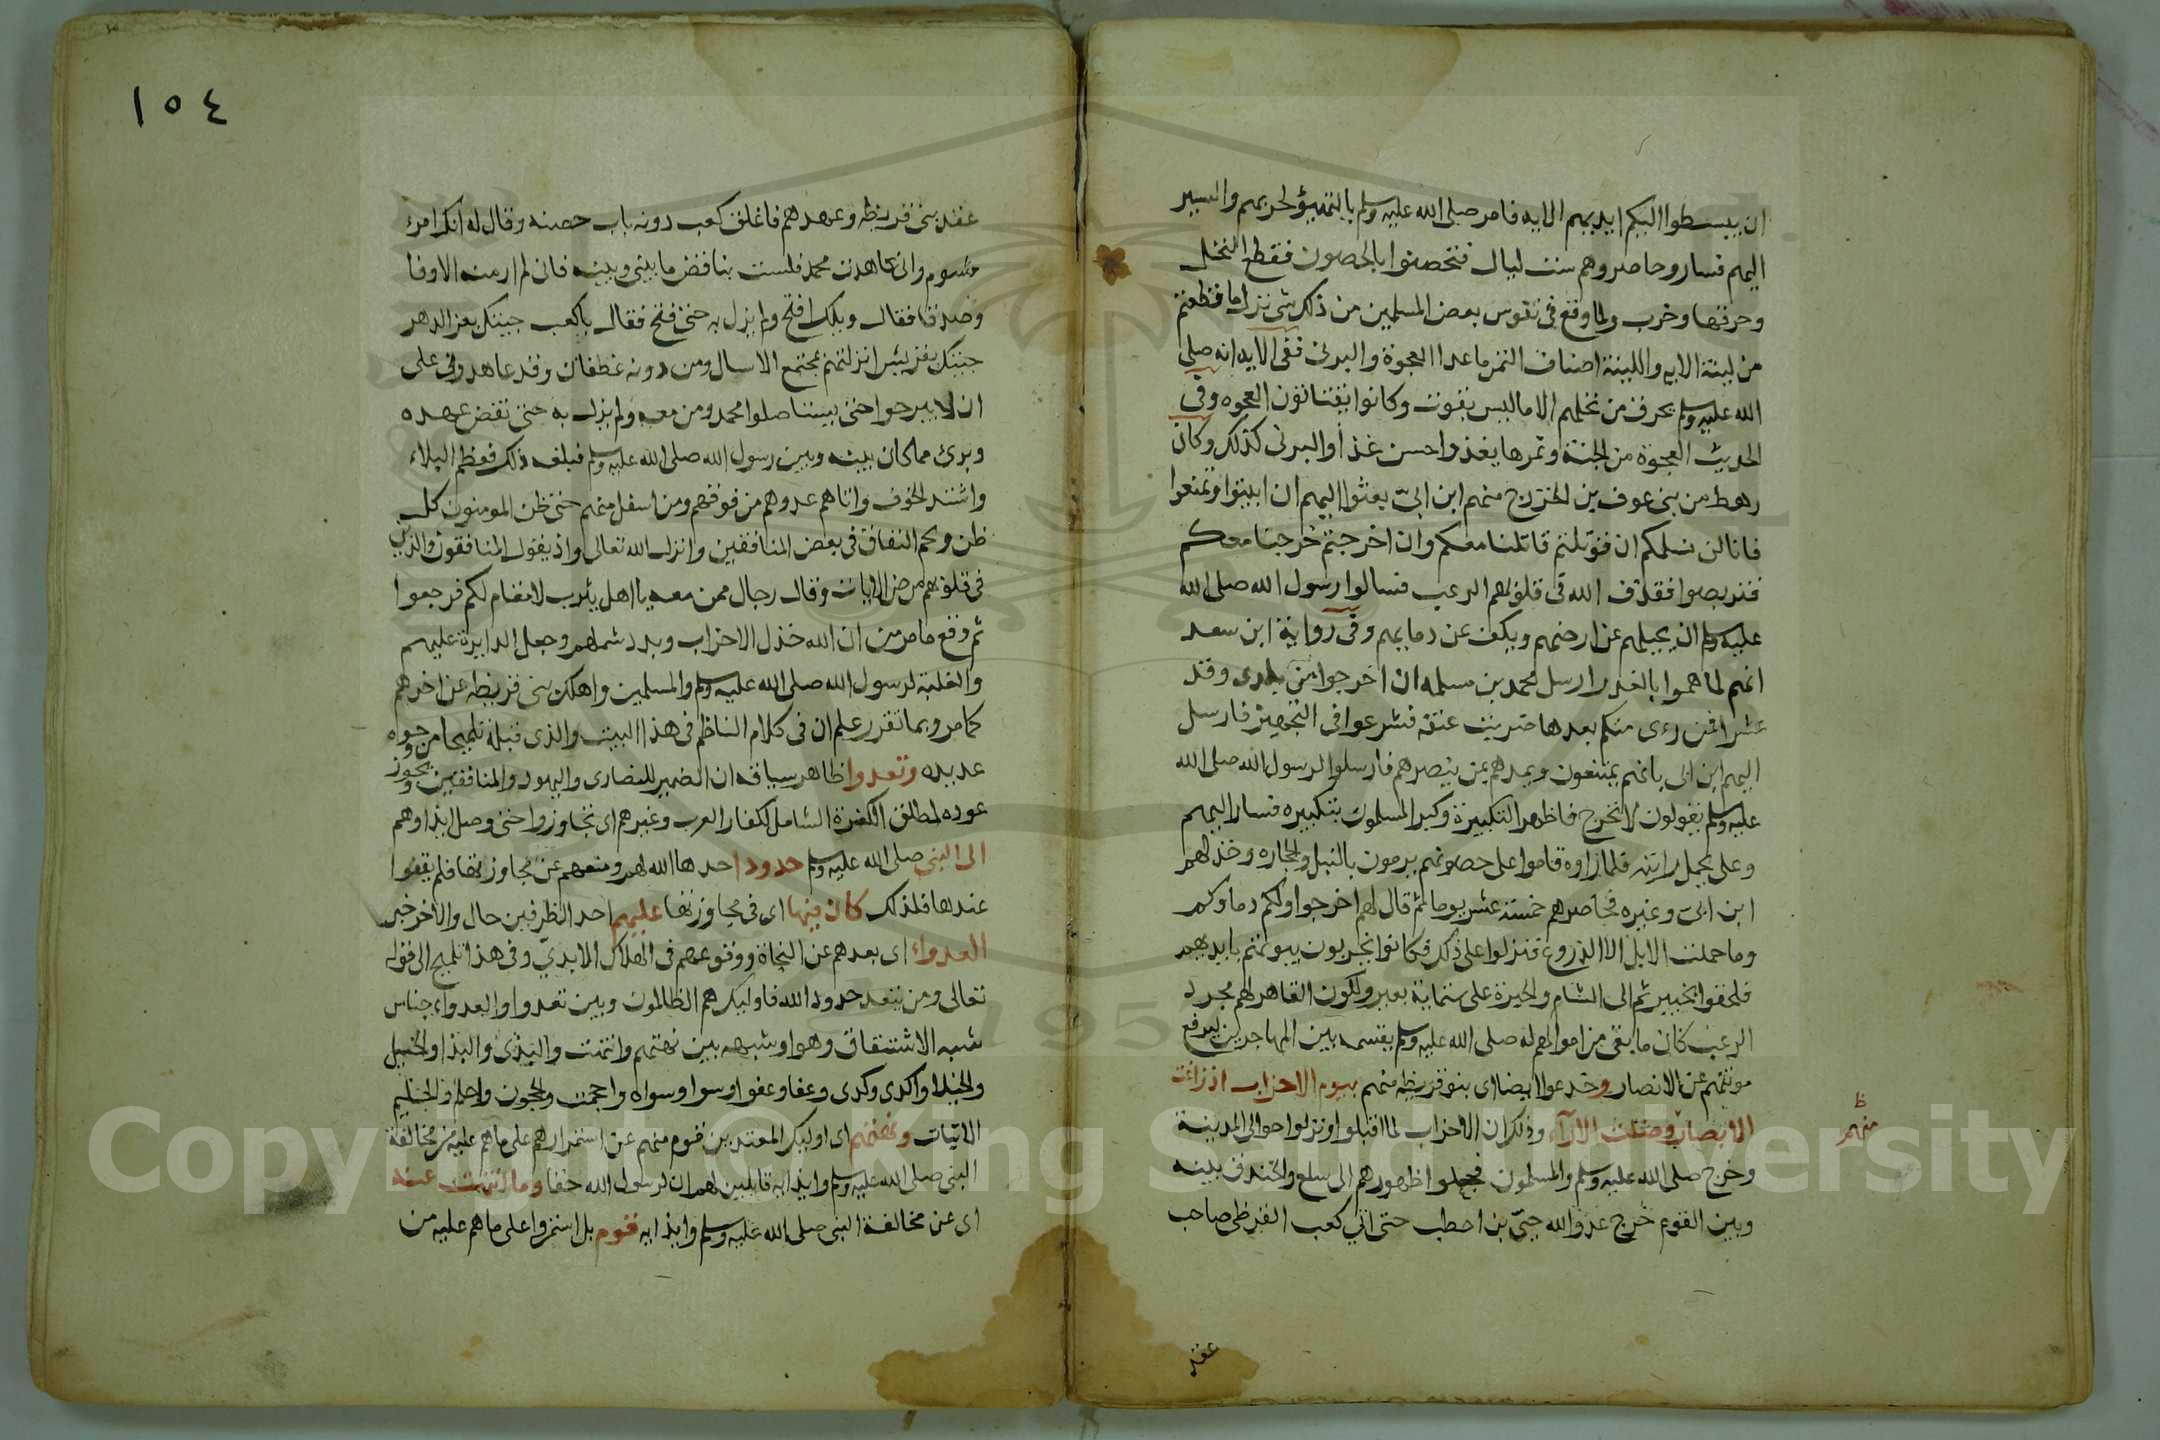 ان يبسطوا اليكم ايديهم الايه فامر صلى الله عليه وسلم بالتهيؤ لحربهم والسير
اليهم فسار وحاصروهم ست ليال فتحصنوا بالحصون فقطع النخل
وحرقها وخرب ولما وقع فى نفوس بعض المسلمين من ذلك شى نزل ما قطعتم
من لينة الايه واللينة اصناف التمر ما عدا العجوة والبرنى ففى الايه انه صلى
الله عليه وسلم يحرق من نخلهم الا ما ليس بقوت وكانوا يقتاتون العجوه وفى
الحديث العجوة من الجنة وتمرها يغذوا احسن غذا والبرنى كذلك وكان
رهط من بنى عوف بن الخزرج منهم ابن ابىّ بعثوا اليهم ان اثبتوا وتمنعوا
فانا لن نسلمكم ان قوتلتم قاتلنا معكم وان اخرجتم خرجنا معكم
فتربصوا فقذف الله فى قلوبهم الرعب فسالوا رسول الله صلى الله
عليه وسلم ان يجليهم عن ارضهم ويكف عن دمايهم وفى رواية ابن سعد
انهم لما هموا بالغدر ارسل محمد بن مسلمه ان اخرجوا من بلدى وقد
عشرا فمن رءى منكم بعدها ضربت عنقه فشرعوا فى التجهيز فارسل
اليهم ابن ابى بانهم يمتنعون ويمدهم بمن ينصرهم فارسلوا لرسول الله صلى الله
عليه وسلم يقولون لا نخرج فاظهر التكبيرة وكبر المسلمون بتكبيره فسار اليهم
وعلى يحمل رايته فلما راوه قاموا على حصونهم يرمون بالنبل والحجاره وخذلهم
ابن ابىّ وغيره فحاصرهم خمسة عشر يوما ثم قال لهم اخرجوا ولكم دماوكم
وما حملت الابل الا الدروع فنزلوا على ذلك فكانوا يخربون بيوتهم بايديهم
فلحقوا بخيبر ثم الى الشام والحيرة على ستماية بعير ولكون القاهر لهم مجرد
الرعب كان ما بقى من اموالهم له صلى الله عليه وسلم يقسمه بين المهاجرين ليرفع
مونتهم عن الانصار وخدعوا ايضا اى بنو قريظه منهم بيوم الاحزاب اذ زاغت
الابصار وضلت الارآء وذلك ان الاحزاب لما اقبلوا ونزلوا حوالى المدينة
منهم
ظ
وخرج صلى الله عليه وسلم والمسلمون فجعلوا ظهورهم الى سلع والخندق بينه
وبين القوم خرج عدو الله حيىّ بن احطب حتى اتى كعب القرظى صاحب
عقد
١٥٤
عقد بنى قريظه وعهدهم فاغلق كعب دونه باب حصنه وقال له انك امرء
مشوم وانى عاهدت محمد فلست بناقض ما بينى وبينه فانى لم ار منه الا وفا
وصدقا فقال ويلك افتح ولم يزل به حتى فتح فقال يا كعب جيتك بعز الدهر
جيتك بقريش انزلتهم بمجتمع الاسيال ومن دونه غطفان وقد عاهدونى على
ان لا يبرحوا حتى يستاصلوا محمد ومن معه ولم يزل به حتى نقض عهده
وبرئ مما كان بينه وبين رسول الله صلى الله عليه وسلم فبلغه ذلك فعظم البلاء
واشتد الخوف واتاهم عدوهم من فوقهم ومن اسفل منهم حتى ظن المومنون كل
ظن ونجم النفاق فى بعض المنافقين وانزل الله تعالى واذ يقول المنافقون والذين
فى قلوبهم مرض الايات وقال رجال ممن معه يا اهل يثرب لا مقام لكم فرجعوا
ثم وقع ما مر من ان الله خذل الاحزاب وبدد شملهم وجعل الدايرة عليهم
والغلبة لرسول الله صلى الله عليه وسلم والمسلمين واهلك بنى قريظه عن اخرهم
كما مر وبما تقرر علم ان فى كلام الناظم فى هذا البيت والذى قبله تلميحا من وجوه
عديده وتعدوا ظاهر سياقه ان الضمير للنصارى واليهود والمنافقين ويجوز
عوده لمطلق الكفرة الشامل لكفار العرب وغيرهم اى تجاوزوا حتى وصل ايذاوهم
الى النبى صلى الله عليه وسلم حدودا حدها الله لهم ومنعهم عن مجاوزتها فلم يقفوا
عندها فلذلك كان فيها اى فى مجاوزتها عليهم احد الظرفين حال والاخر خبر
العدواء اى بعدهم عن النجاة ووقوعهم فى الهلاك الابدىّ وفى هذا تلميح الى قوله
تعالى ومن يتعد حدود الله فاوليك هم الظالمون وبين تعدوا والعدواء جناس
شبه الاشتقاق وهو او شبهه بين نهتهم وانتهت والبذى والبذا والخيل
والخيلا واكدى وكدى وعفا وعفو اوسوا وسواه واحجمت والحجون واحلم والحليم
الاتيات ونهتهم اى اوليك المعتدين قوم منهم عن استمرارهم على ما هم عليه من مخالفة
النبى صلى الله عليه وسلم وايذايه قايلين لهم ان رسول الله حقا وما انتهت عنه
اى عن مخالفة النبى صلى الله عليه وسلم وايذايه قوم بل استمروا على ما هم عليه من
Copyright © King Saud University
1957